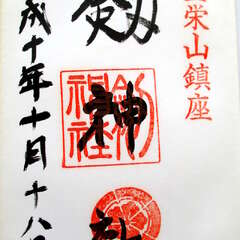 栄山鎮座
劔神社
劔神社
成十年十月十八日